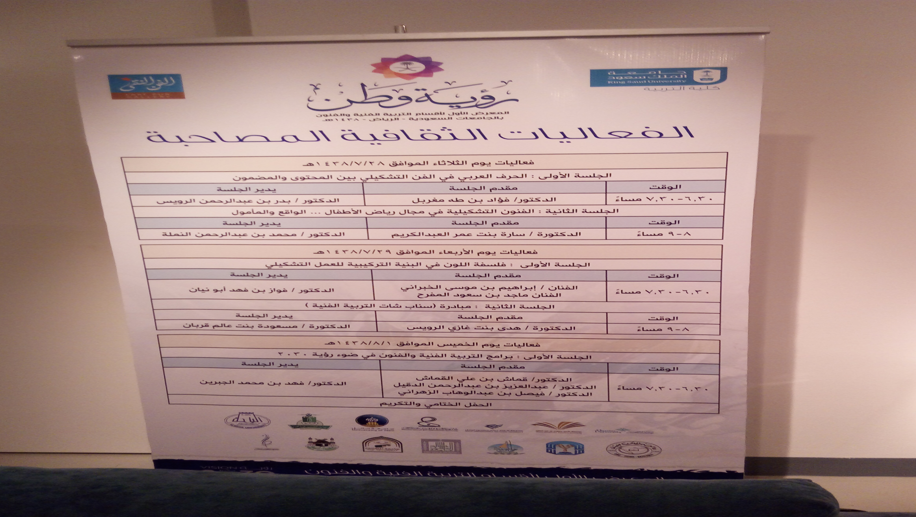 جامعة
الملك سعود
King Saud University
كلية التربية
رؤية وطن
المعرض الأول لأقسام التربية الفنية والفنون
بالجامعات السعودية - الرياض - ١٤٣٨هـ
الفعاليات الثقافية المصاحبة
فعاليات يوم الثلاثاء الموافق ١٤٣٨/٧/٢٨هـ
الجلسة الأولى : الحرف العربي في الفن التشكيلي بين المحتوى والمضمون
الوقت مقدم الجلسة يدير الجلسة
٦,٣٠-٧,٣٠ مساءً الدكتور/ فؤاد بن طه مغربل الدكتور / بدر بن عبدالرحمن الرويس
الجلسة الثانية : الفنون التشكيلية في مجال رياض الأطفال ... الواقع والمأمول
الوقت مقدم الجلسة يدير الجلسة
٨-٩ مساءً الدكتورة / سارة بنت عمر العبدالكريم الدكتور / محمد بن عبدالرحمن النملة
فعاليات يوم الأربعاء الموافق ١٤٣٨/٧/٢٩هـ
الجلسة الأولى : فلسفة اللون في البنية التركيبية للعمل التشكيلي
الوقت مقدم الجلسة يدير الجلسة
٦,٣٠-٧,٣٠ مساءً الفنان / إبراهيم بن موسى الخبراني الدكتور / فواز بن فهد أبو نيان
الفنان ماجد بن سعود المفرح
الجلسة الثانية : مبادرة (سناب شات التربية الفنية )
الوقت مقدم الجلسة يدير الجلسة
٨-٩ مساءً الدكتورة / هدى بنت غازي الرويس الدكتورة / مسعودة بنت عالم قربان
فعاليات يوم الخميس الموافق ١٤٣٨/٨/١هـ
الجلسة الأولى : برامج التربية الفنية والفنون في ضوء رؤية ٢٠٣٠
الوقت مقدم الجلسة يدير الجلسة
٦,٣٠-٧,٣٠ مساءً الدكتور/ قماش بن علي القماش الدكتور/ فهد بن محمد الجبرين
الدكتور / عبدالعزيز بن عبدالرحمن الدقيل
الدكتور / فيصل بن عبدالوهاب الزهراني
الحفل الختامي والتكريم